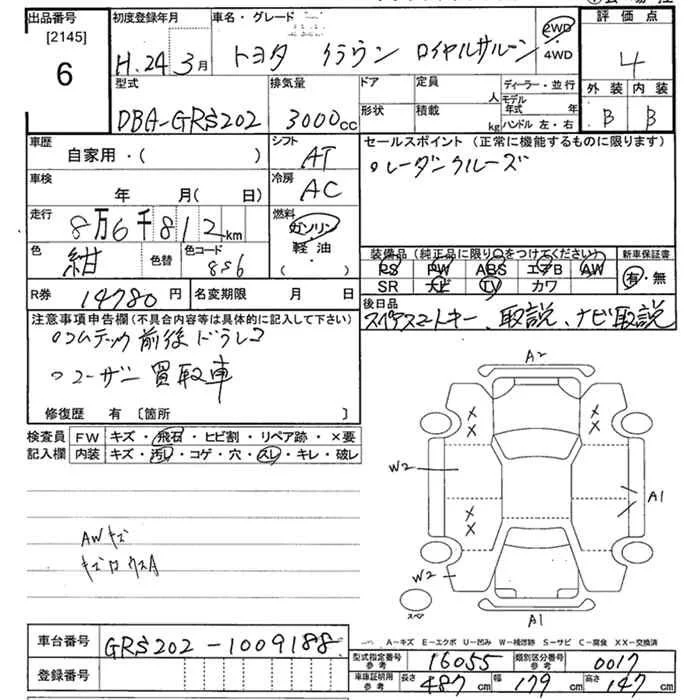 出品番号 初度登録年月 車名・グレード 評価点
[2145]
6
H.24 3月 トヨタ クラウン ロイヤルサルーン 2WD・4WD 4
外装 内装
B B
型式 排気量 ドア 定員 人 ディーラー・並行
DBA-GRS202 3000cc 形状 積載 kg モデル年式 年
ハンドル 左・右
車歴 自家用・( ) シフト AT
セールスポイント(正常に機能するものに限ります)
○レーダークルーズ
車検 年 月(日) 冷房 AC
走行 8万6千812km 燃料 ガソリン
軽油
・( )
色 紺 色替 色コード 8S6
装備品(純正品に限り○をつけてください) 新車保証書
PS PW ABS エアB AW 有・無
SR ナビ TV カワ
R券 14780円 名変期限 月 日
後日品
スペアスマートキー、取説、ナビ取説
注意事項申告欄(不具合内容等は具体的に記入して下さい)
○コムテック前後ドラレコ
○ユーザー買取車
修復歴 有 〔箇所 〕
検査員記入欄 FW キズ・飛石・ヒビ割・リペア跡・×要
内装 キズ・汚レ・コゲ・穴・スレ・キレ・破レ
A2
X X
X X
W2
A1
X X
W2
スペア
A1
AWキズ
A-キズ E-エクボ U-凹み W-補修跡 S-サビ C-腐食 XX-交換済
車台番号 GRS202-1009188
登録番号
型式指定番号 参考 16055 類別区分番号 参考 0017
車庫証明用 参考 長さ 487cm 幅 179cm 高さ 147cm